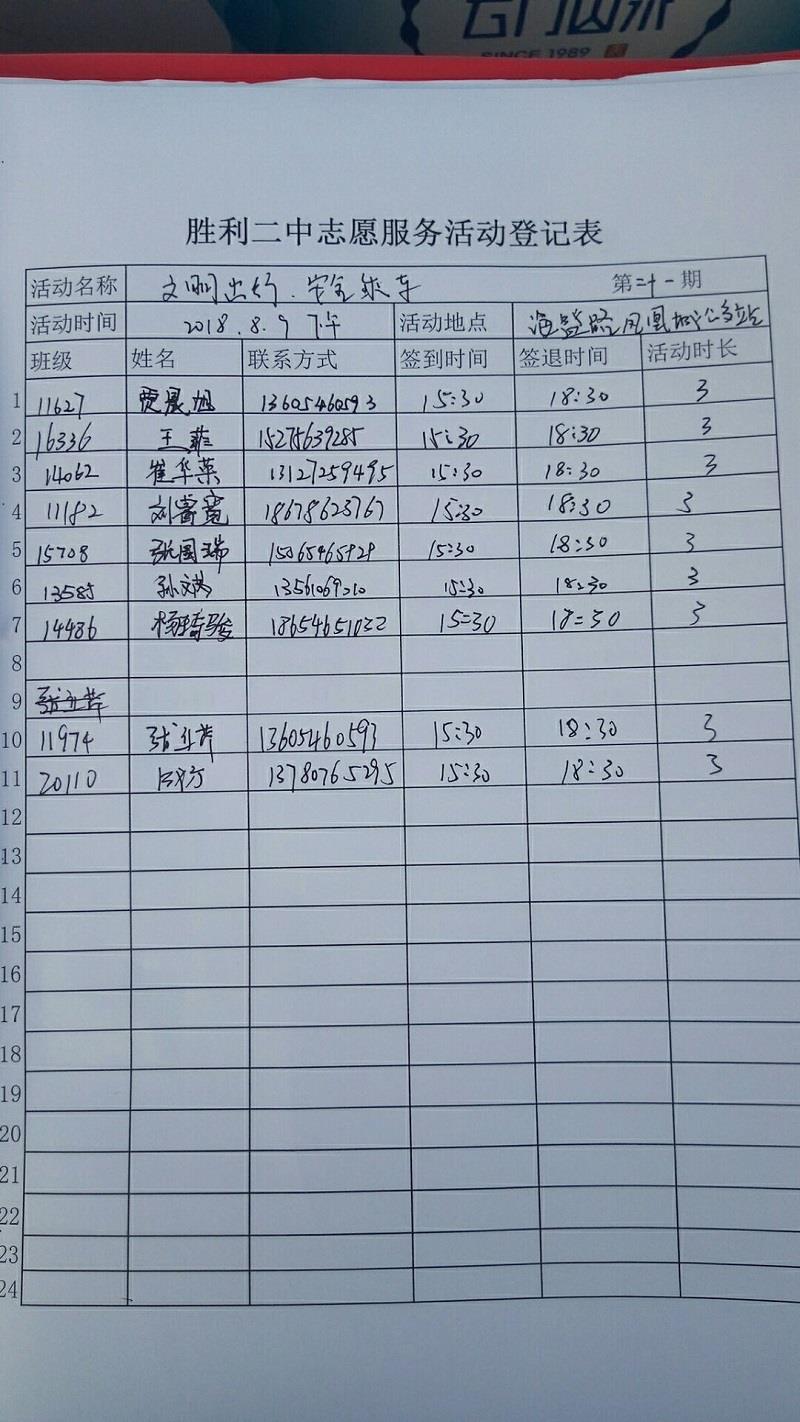 SINCE 1989
胜利二中志愿服务活动登记表
活动名称 文明出行、安全乘车 第二十一期
活动时间 2018.8.9 下午 活动地点 凤凰城公交站
班级 姓名 联系方式 签到时间 签退时间 活动时长
1 11627 贾晨旭 13605460593 15:30 18:30 3
2 16336 王菲 15275639285 15:30 18:30 3
3 14062 崔华荣 13127259495 15:30 18:30 3
4 11182 刘睿宽 18678623767 15:30 18:30 3
5 15708 张国瑞 15:30 18:30 3
6 13585 15:30 18:30 3
7 14486 杨琦骏 18654651032 15=30 18=30 3
8
9
10 11974 13605460593 15:30 18:30 3
11 20110 13780765295 15:30 18:30 3
12
13
14
15
16
17
18
19
20
21
22
23
24